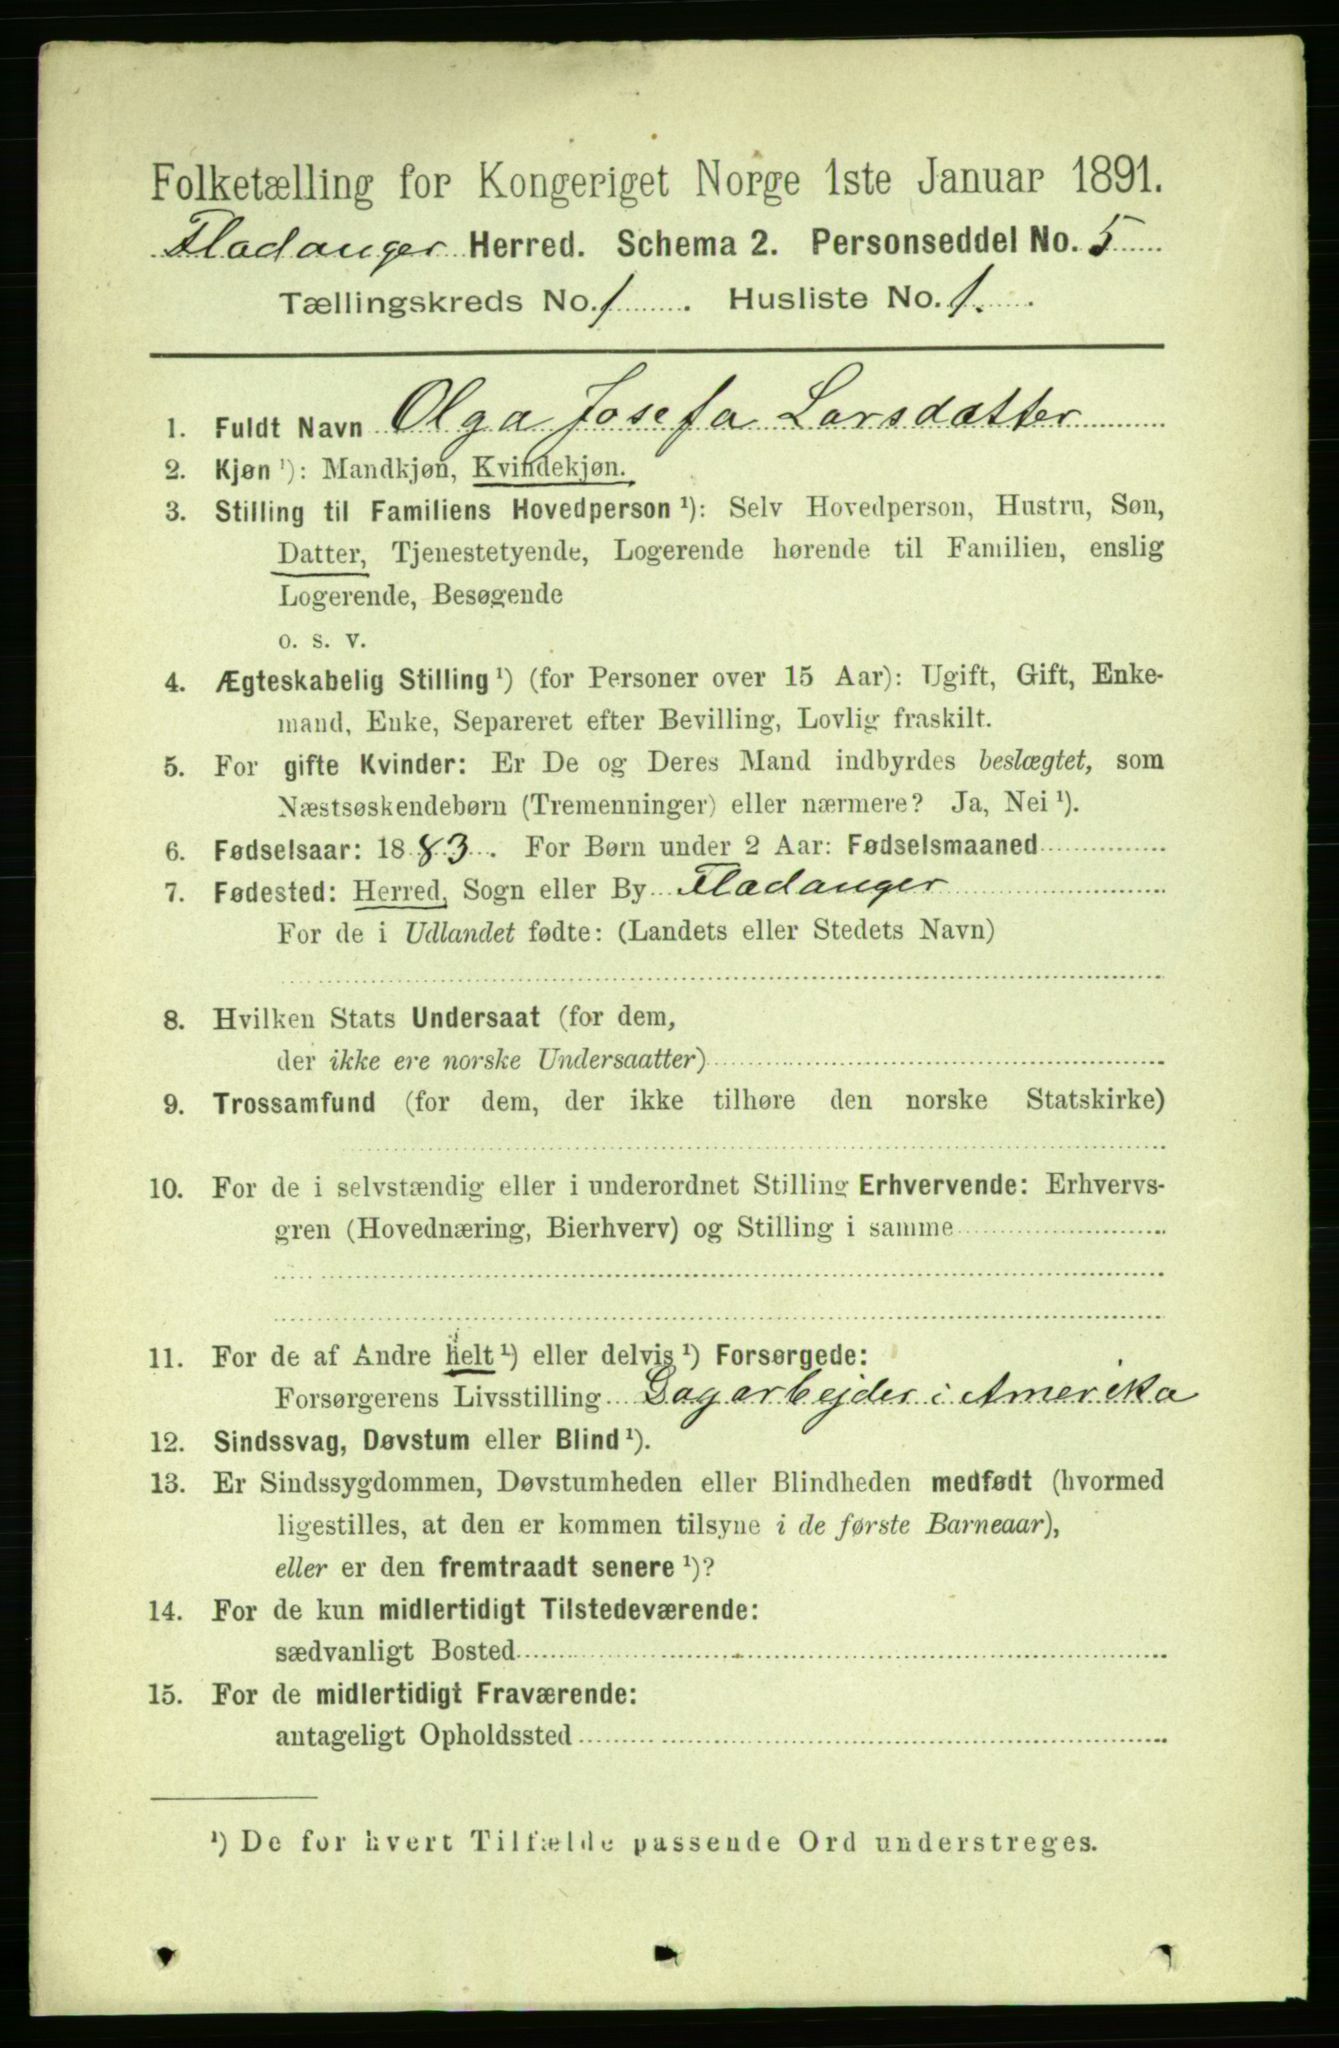 Folketælling for Kongeriget Norge 1ste Januar 1891.
Fladanger Herred. Schema 2. Personseddel No. 5
Tællingskreds No. 1. Husliste No. 1.
1. Fuldt Navn Olga Josefa Larsdatter
2. Kjøn ¹): Mandkjøn, Kvindekjøn.
3. Stilling til Familiens Hovedperson ¹): Selv Hovedperson, Hustru, Søn,
Datter, Tjenestetyende, Logerende hørende til Familien, enslig
Logerende, Besøgende
o. s. v.
4. Ægteskabelig Stilling ¹) (for Personer over 15 Aar): Ugift, Gift, Enke-
mand, Enke, Separeret efter Bevilling, Lovlig fraskilt.
5. For gifte Kvinder: Er De og Deres Mand indbyrdes beslægtet, som
Næstsøskendebørn (Tremenninger) eller nærmere? Ja, Nei ¹).
6. Fødselsaar: 1883. For Børn under 2 Aar: Fødselsmaaned
7. Fødested: Herred, Sogn eller By Fladanger
For de i Udlandet fødte: (Landets eller Stedets Navn)
8. Hvilken Stats Undersaat (for dem,
der ikke ere norske Undersaatter)
9. Trossamfund (for dem, der ikke tilhøre den norske Statskirke)
10. For de i selvstændig eller i underordnet Stilling Erhvervende: Erhvervs-
gren (Hovednæring, Bierhverv) og Stilling i samme
11. For de af Andre helt ¹) eller delvis ¹) Forsørgede:
Forsørgerens Livsstilling Dagarbejder i Amerika
12. Sindssvag, Døvstum eller Blind ¹).
13. Er Sindssygdommen, Døvstumheden eller Blindheden medfødt (hvormed
ligestilles, at den er kommen tilsyne i de første Barneaar),
eller er den fremtraadt senere ¹)?
14. For de kun midlertidigt Tilstedeværende:
sædvanligt Bosted
15. For de midlertidigt Fraværende:
antageligt Opholdssted
¹) De for hvert Tilfælde passende Ord understreges.